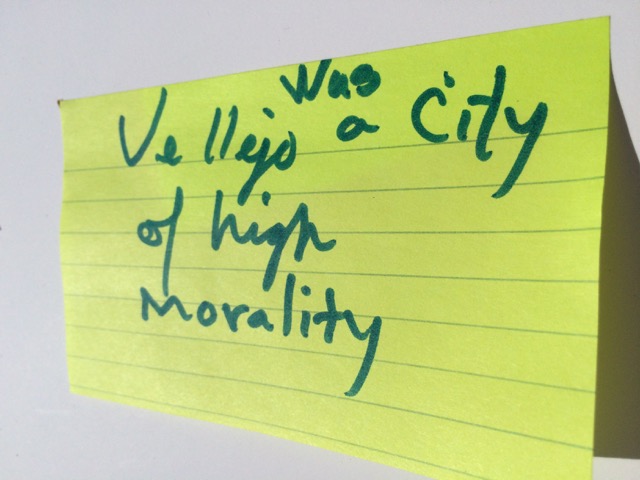 Vellejo was a City
of high
morality